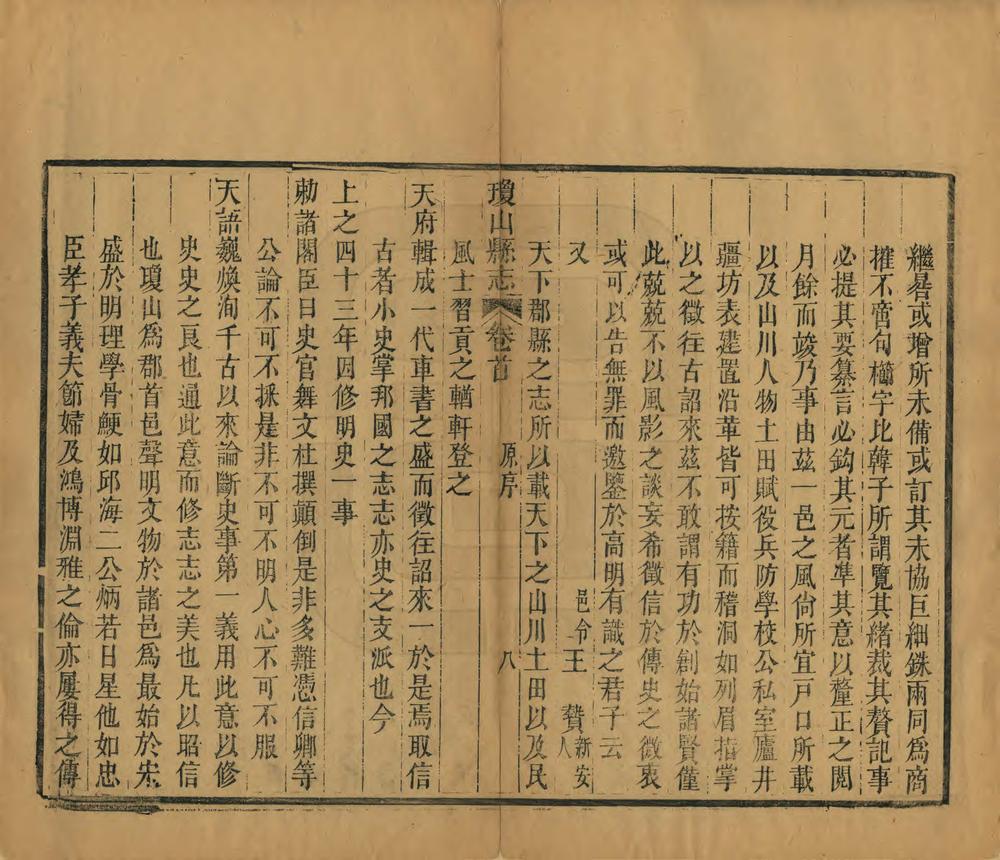 繼晷或增所未備或訂其未協巨細銖兩同為商
搉不啻句櫛字比韓子所謂覽其緒裁其贅記事
必提其要纂言必鈎其元者凖其意以釐正之閱
月餘而竣乃事由茲一邑之風尙所宜戸口所載
以及山川人物土田賦役兵防學校公私室廬井
疆坊表建置沿革皆可按籍而稽洞如列眉指掌
以之徵往古詔來茲不敢謂有功於創始諸賢僅
此兢兢不以風影之談妄希徵信於傳史之微衷
或可以告無罪而邀鑒於高明有識之君子云
又 邑令王贄新安人
天下郡縣之志所以載天下之山川土田以及民
瓊山縣志 卷首 原序 八
風士習貢之輶軒登之
天府輯成一代車書之盛而徵往詔來一於是焉取信
古者小史掌邦國之志志亦史之支派也今
上之四十三年因修明史一事
勅諸閣臣曰史官舞文杜撰顛倒是非多難憑信卿等
公論不可不採是非不可不明人心不可不服
天語巍煥洵千古以來論斷史事第一義用此意以修
史史之良也通此意而修志志之美也凡以昭信
也瓊山爲郡首邑聲明文物於諸邑爲最始於宋
盛於明理學骨鯁如邱海二公炳若日星他如忠
臣孝子義夫節婦及鴻博淵雅之倫亦屢得之傳